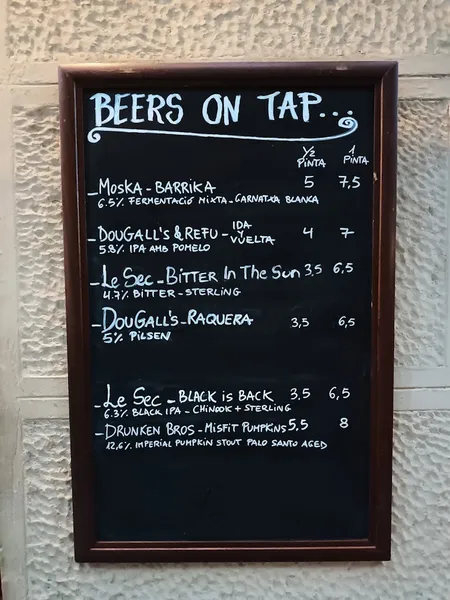 BEERS ON TAP...
1/2 PINTA 1 PINTA
- MOSKA - BARRIKA 5 7,5
6.5% FERMENTACIÓ MIXTA - GARNATXA BLANCA
- DOUGALL'S & REFU - IDA Y VUELTA 4 7
5.8% IPA AMB POMELO
- Le Sec - BITTER IN THE SUN 3,5 6,5
4.7% BITTER - STERLING
- DOUGALL'S - RAQUERA 3,5 6,5
5% PILSEN
- Le Sec - BLACK is BACK 3,5 6,5
6.3% BLACK IPA - CHINOOK + STERLING
- DRUNKEN BROS - MISFIT PUMPKINS 5,5 8
12,6% IMPERIAL PUMPKIN STOUT PALO SANTO AGED